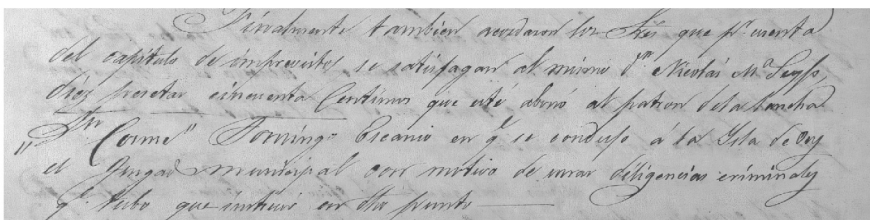 Finalmente tambien acordaron los Sres que pr cuenta
del capitulo de imprevistos se satisfagan al mismo Dn Nicolás Ma
diez pesetas cincuenta Centimos que esté abonó al patron de la lancha
"Sn Cosme" Domingo en q se condujo á la Isla de
el Juzgado municipal con motivo de unas diligencias criminales
qe tubo que instruir en dho punto